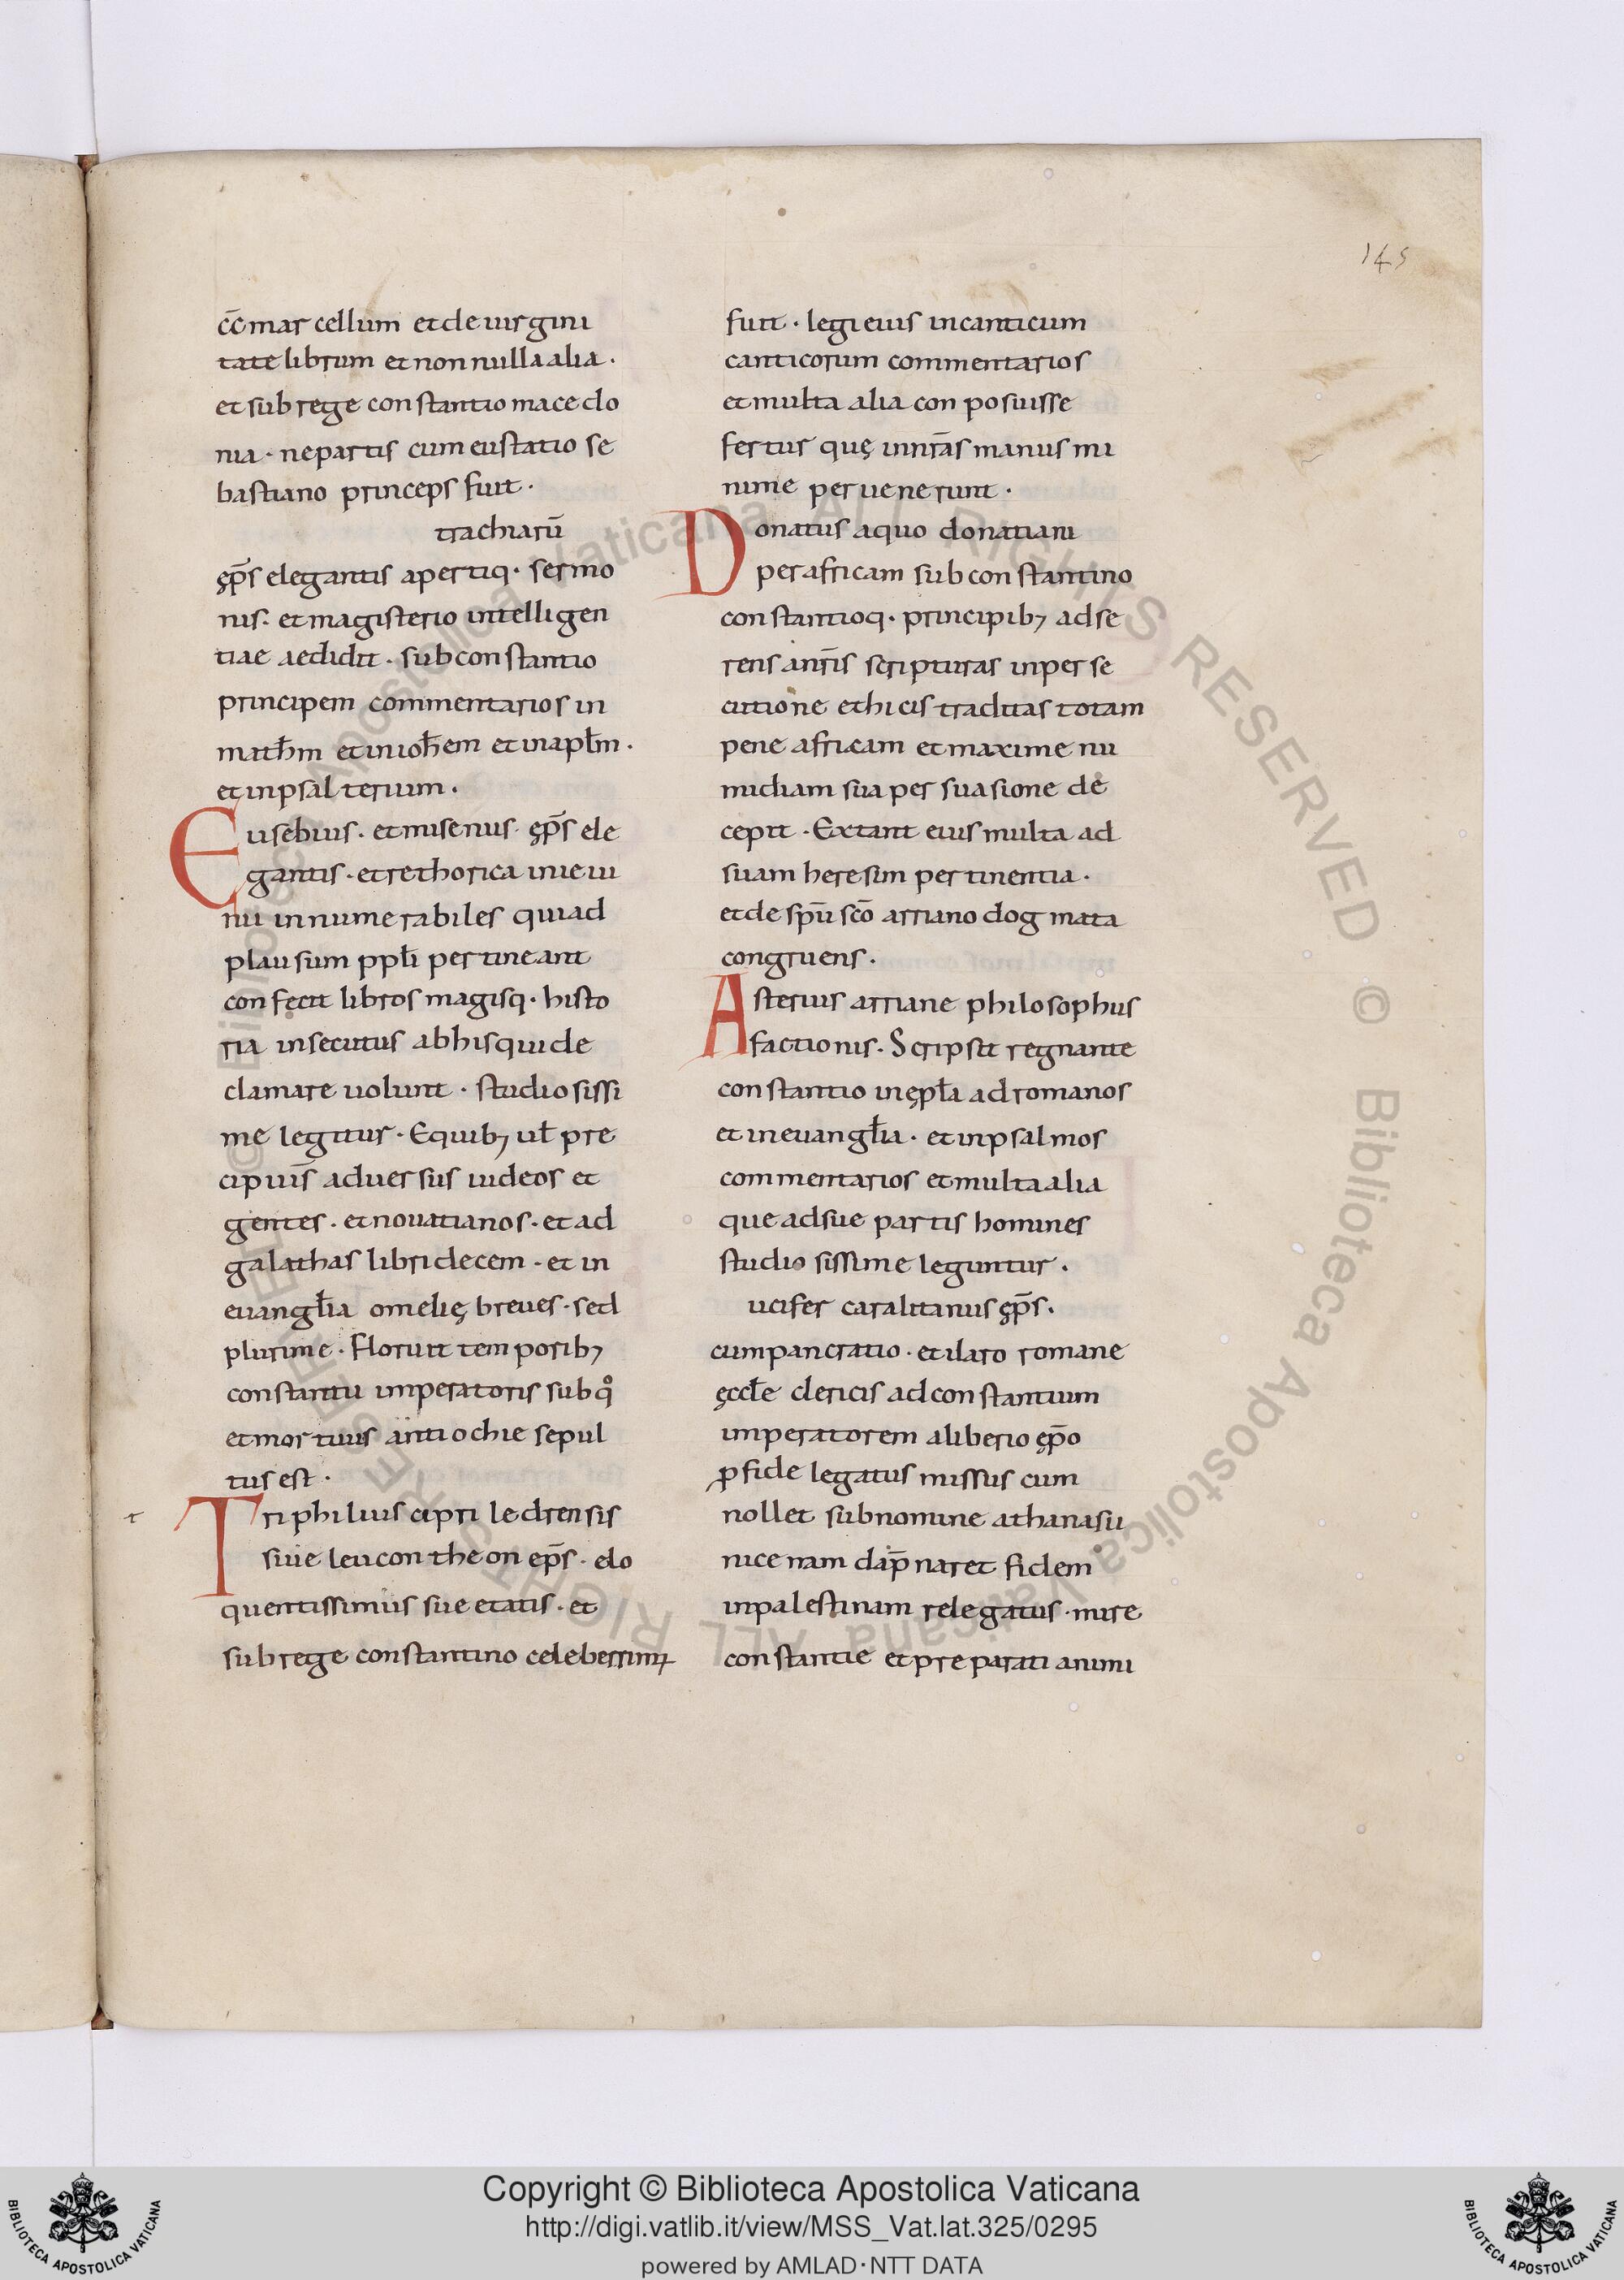 145
cc̄ marcellum et de uirgini
tate librum et non nulla alia ·
et sub rege constantio macedo
nia · nepartis cum eustatio se
bastiano princeps fuit ·
trachiarū
ęp̄s elegantis apertiq· sermo
nis · et magisterio intelligen
tiae aedidit · sub constantio
principem commentarios in
math̄m et in ioh̄em et in apl̄m ·
et in psalterium ·
Eusebius · et misenus · ęp̄s ele
gantis · et rethorica inieui
nu innumerabiles qui ad
plausum ppl̄i pertineant
confecit libros magisq· histo
ria insecutus ab his qui de
clamare uolunt · studiosissi
me legitur · Equib; ul̄ pre
cipuis̄ aduersus iudeos et
gentes · et nouatianos · et ad
galathas libri decem · et in
euangl̄ia omelię breues · sed
plurime · Floruit temporib;
constantii imperatoris sub qo
et mortuus antiochie sepul
tus est ·
t
Triphilius cipri ledrensis
siue leucontheon ep̄s · elo
quentissimus sue etatis · et
sub rege constantino celeberrim;
fuit · legi eius in canticum
canticorum commentarios
et multa alia conposuisse
fertur quę in nr̄as manus mi
nime peruenerunt ·
Donatus a quo donatiani
per africam sub constantino
constantioq· principib; adse
rens a nr̄is scripturas in perse
cutione ethicis traditas totam
pene africam et maxime nu
midiam sua persuasione de
cepit · Extant eius multa ad
suam heresim pertinentia ·
et de sp̄u sc̄o arriano dogmata
congruens ·
Asterius arriane philosophus
factionis · Scripsit regnante
constantio in ępl̄a ad romanos
et in euangl̄ia · et in psalmos
commentarios et multa alia
que ad sue partis homines
studiosissime leguntur ·
ucifer caralitanus ęp̄s ·
cum pancratio · et ilaro romane
ęccl̄e clericis ad constantium
imperatorem a liberio ęp̄o
ꝓ fide legatus missus cum
nollet sub nomine athanasii
nicenam dāpnaret fidem
in palestinam relegatus · mire
constantie et preparati animi
Copyright © Biblioteca Apostolica Vaticana
http://digi.vatlib.it/view/MSS_Vat.lat.325/0295
powered by AMLAD·NTT DATA
BIBLIOTECA APOSTOLICA VATICANA
BIBLIOTECA APOSTOLICA VATICANA
© Biblioteca Apostolica Vaticana ALL RIGHTS RESERVED © Biblioteca Apostolica Vaticana ALL RIGHTS RESERVED